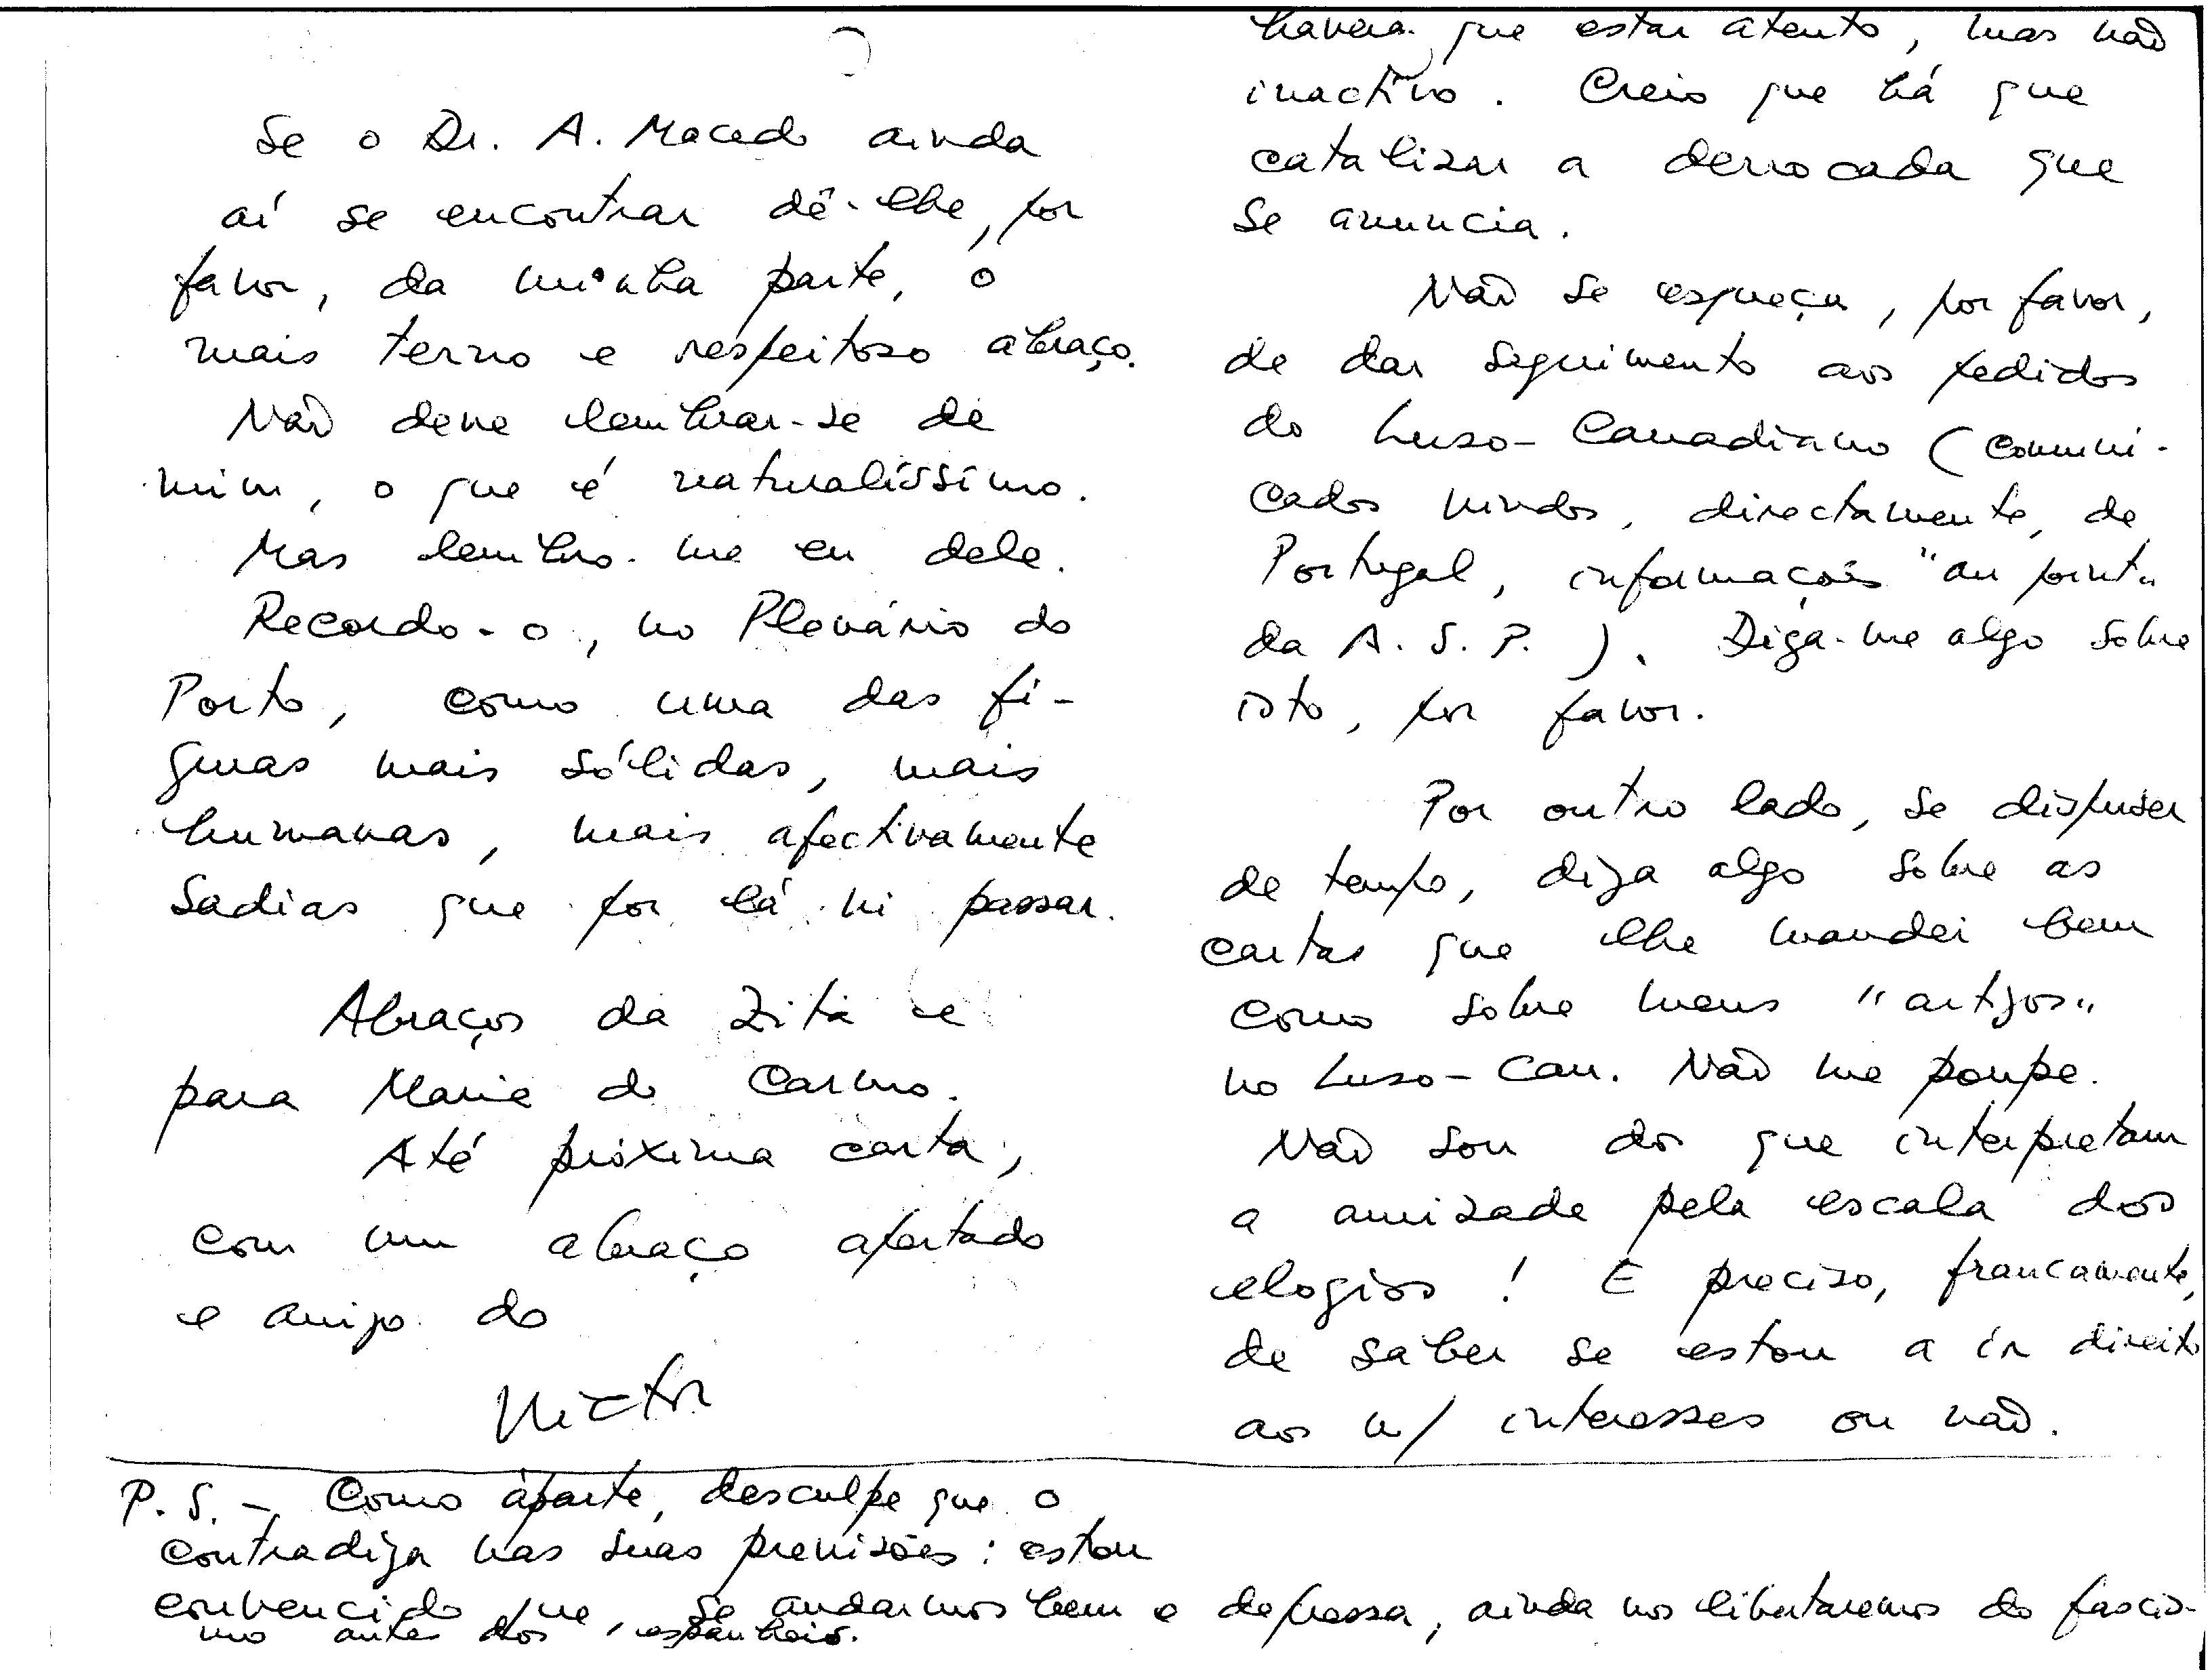 Se o Dr. A. Macedo ainda
aí se encontrar dê-lhe, por
favor, da minha parte, o
mais terno e respeitoso abraço.
Não deve lembrar-se de
mim, o que é naturalíssimo.
Mas lembro-me eu dele.
Recordo-o, no Plenário do
Porto, como uma das fi-
guras mais sólidas, mais
humanas, mais afectivamente
sadias que por lá vi passar.
Abraços da Zita e
para Maria do Carmo.
Até próxima carta,
com um abraço apertado
e amigo do
Victor
haverá que estar atento, mas não
inactivo. Creio que há que
catalizar a derrocada que
se anuncia.
Não se esqueça, por favor,
de dar seguimento aos pedidos
do Luso-Canadiano (comuni-
cados vindos, directamente, de
Portugal, informações "au point"
da A. S. P.). Diga-me algo sobre
isto, por favor.
Por outro lado, se dispuser
de tempo, diga algo sobre as
cartas que lhe mandei bem
como sobre meus "artigos"
no Luso-Can. Não me poupe.
Não sou dos que interpretam
a amizade pela escala dos
elogios! E preciso, francamente,
de saber se estou a ir direito
aos n/ interesses ou não.
P. S. - Como àparte, desculpe que o
contradiga nas suas previsões: estou
convencido que, se andarmos bem e depressa, ainda nos libertaremos do fascis-
mo antes dos espanhois.